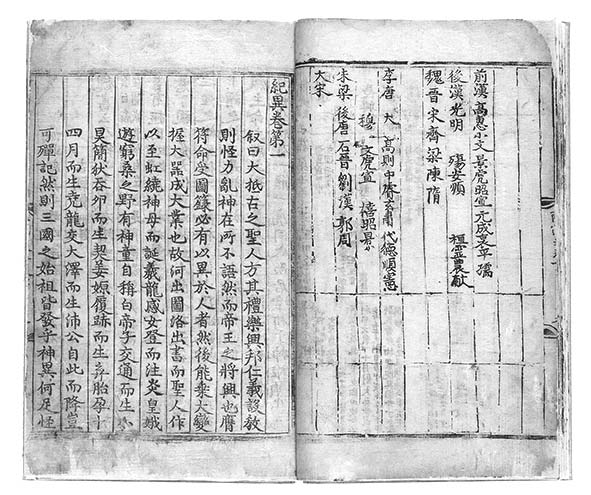 前漢 高惠小文 景虎昭宣 元成哀平孺
後漢光明 殤安順 桓靈農獻
魏晉宋齊梁陳隋
李唐 大 高則中 肅代德順憲
穆 文虎宣 僖昭景
朱梁 後唐 石晉 劉漢 郭周
大宋
紀異卷第一
叙曰大抵古之聖人方其禮樂興邦仁義設敎
則怪力亂神在所不語然而帝王之將興也膺
符命受圖籙必有以異於人者然後能乘大變
握大器成大業也故河出圖洛出書而聖人作
以至虹繞神母而誕羲龍感女登而注炎皇娥
遊窮桑之野有神童自稱白帝子交通而生小
昊簡狄吞卵而生契姜嫄履跡而生弃胎孕十
四月而生堯龍交大澤而生沛公自此而降豈
可殫記然則三國之始祖皆發乎神異何足怪